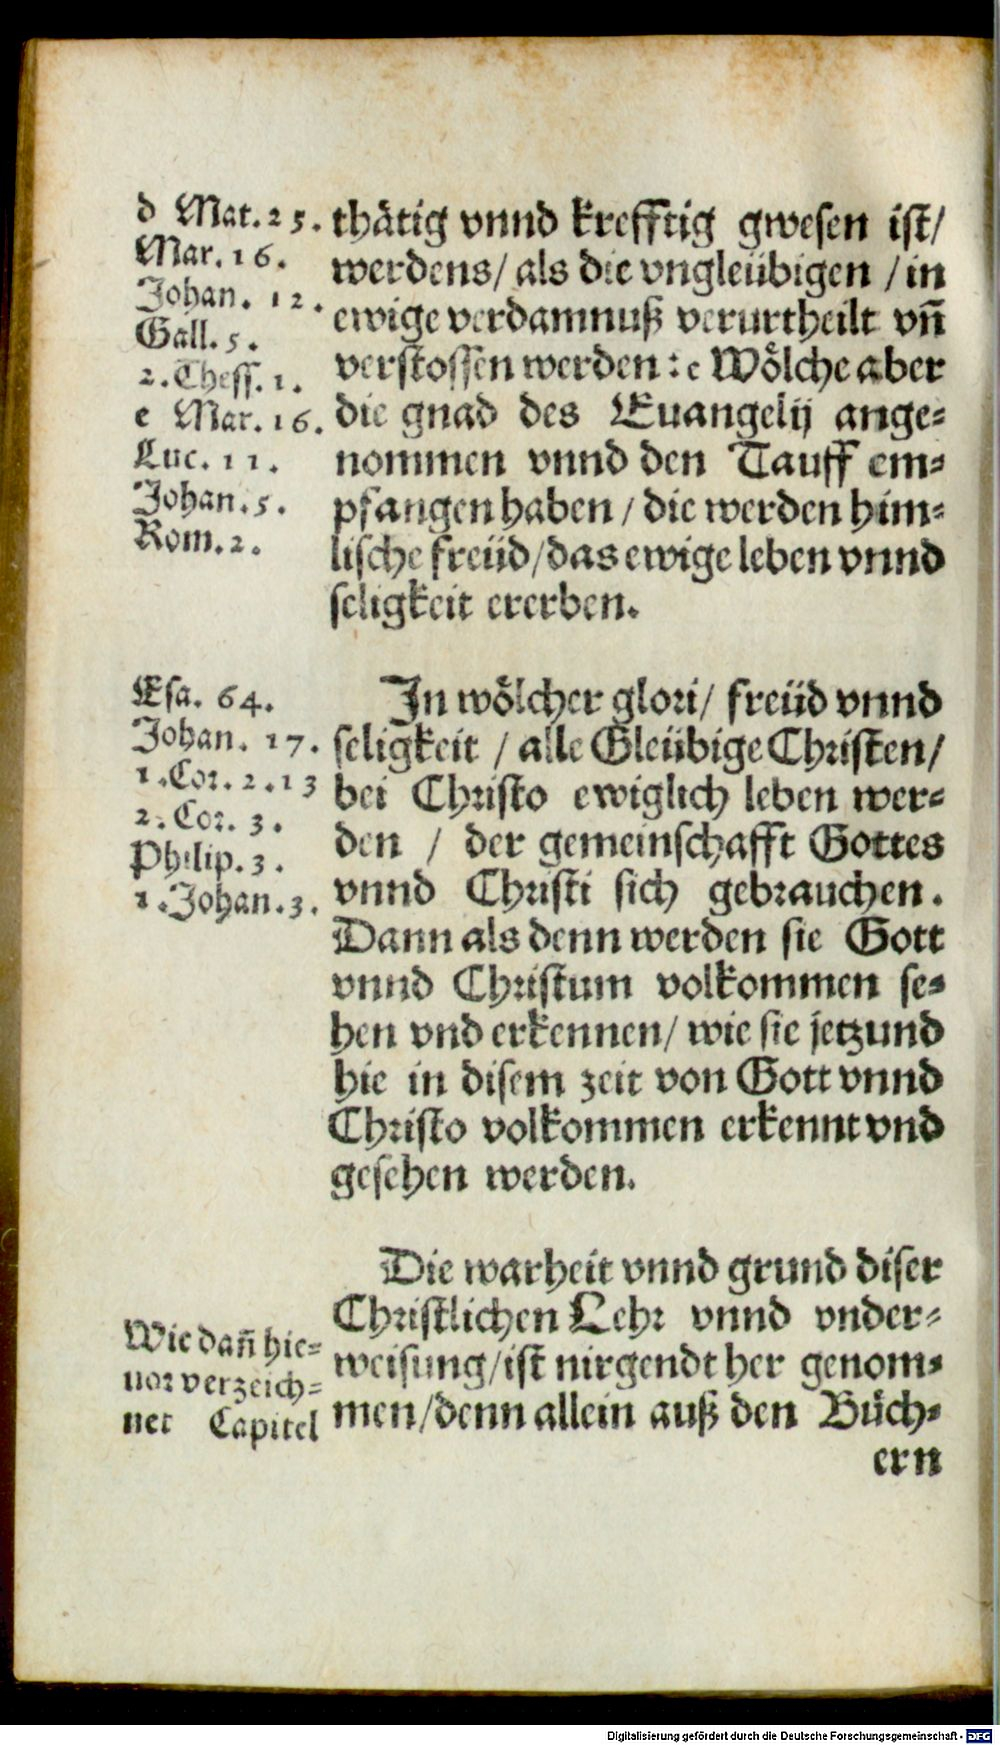 d Mat. 25.
Mar. 16.
Johan. 12.
Gall. 5.
2. Thess. 1.
e Mar. 16.
Luc. 11.
Johan. 5.
Rom. 2.
thätig vnnd krefftig gwesen ist/
werdens/ als die vngleübigen /in
ewige verdamnuß verurtheilt vn̄
verstossen werden: e Wölche aber
die gnad des Euangelij ange⸗
nommen vnnd den Tauff em⸗
pfangen haben / die werden him⸗
lische freüd/das ewige leben vnnd
seligkeit ererben.
Esa. 64.
Johan. 17.
1. Cor. 2. 13
2. Cor. 3.
Philip. 3.
1. Johan. 3.
In wölcher glori/ freüd vnnd
seligkeit / alle Gleübige Christen/
bei Christo ewiglich leben wer⸗
den / der gemeinschafft Gottes
vnnd Christi sich gebrauchen.
Dann als denn werden sie Gott
vnnd Christum volkommen se⸗
hen vnd erkennen/ wie sie jetzund
hie in disem zeit von Gott vnnd
Christo volkommen erkennt vnd
gesehen werden.
Die warheit vnnd grund diser
Christlichen Lehr vnnd vnder⸗
weisung/ist nirgendt her genom⸗
men/denn allein auß den Büch⸗
ern
Wie dan̄ hie⸗
uor verzeich⸗
net Capitel
Digitalisierung gefördert durch die Deutsche Forschungsgemeinschaft - DFG